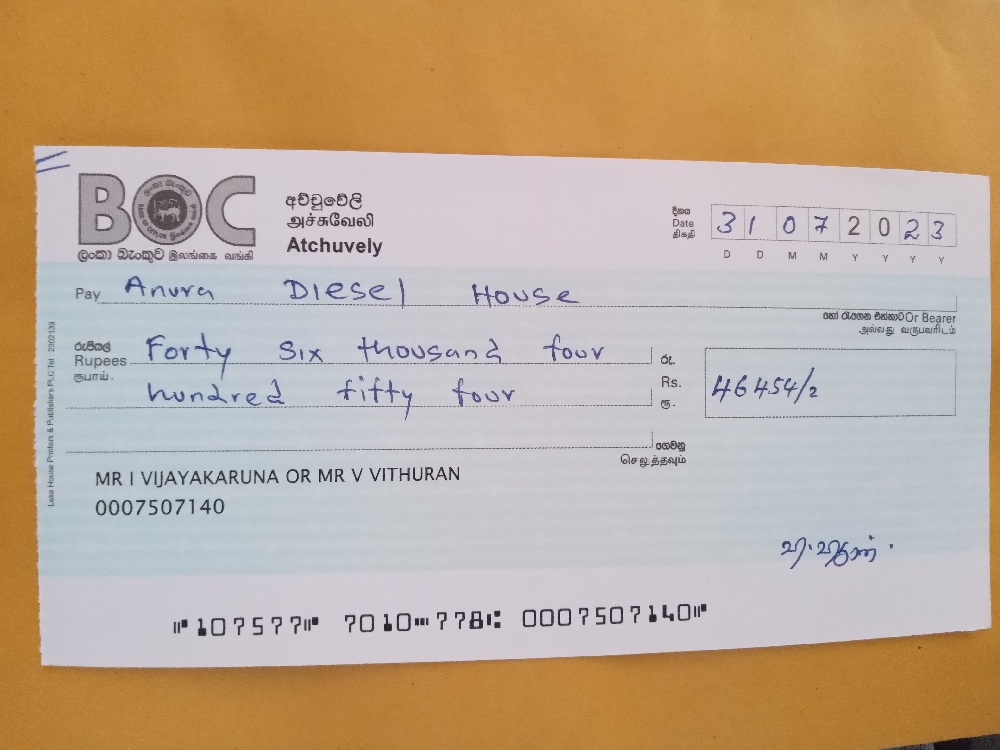 BOC
ලංකා බැංකුව இலங்கை வங்கி
අච්චුවේලි
அச்சுவேலி
Atchuvely
දිනය
Date
திகதி
31 07 2023
D D M M Y Y Y Y
Pay Anura Diesel House
හෝ රැගෙන එන්නාට Or Bearer
அல்லது வருபவரிடம்
රුපියල්
Rupees Forty six thousand four
ரூபாய்.
hundred fifty four
රු.
Rs. 46454/2
ரூ.
ගෙවනු
செலுத்தவும்
MR I VIJAYAKARUNA OR MR V VITHURAN
0007507140
107577 7010 778 0007507140
Lake House Printers & Publishers PLC Tel : 2302139